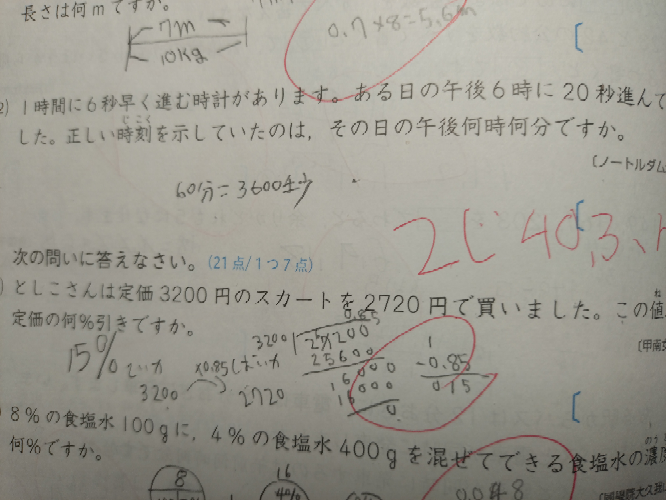 長さは何mですか。
7m
10kg
0.7×8=5.6m
2) 1時間に6秒早く進む時計があります。ある日の午後6時に20秒進んで
した。正しい時刻を示していたのは，その日の午後何時何分ですか。
じこく
〔ノートルダム
60分=3600秒
2じ40ふん
次の問いに答えなさい。(21点/1つ7点)
) としこさんは定価3200円のスカートを2720円で買いました。この値
ね
定価の何%引きですか。
〔甲南女
15%
ていか
3200
×0.85
2720
0.85
3200
27200
25600
16000
16000
0
1
-0.85
0.15
8%の食塩水100gに，4%の食塩水400gを混ぜてできる食塩水の濃度
何%ですか。
8
16
4%
0.048